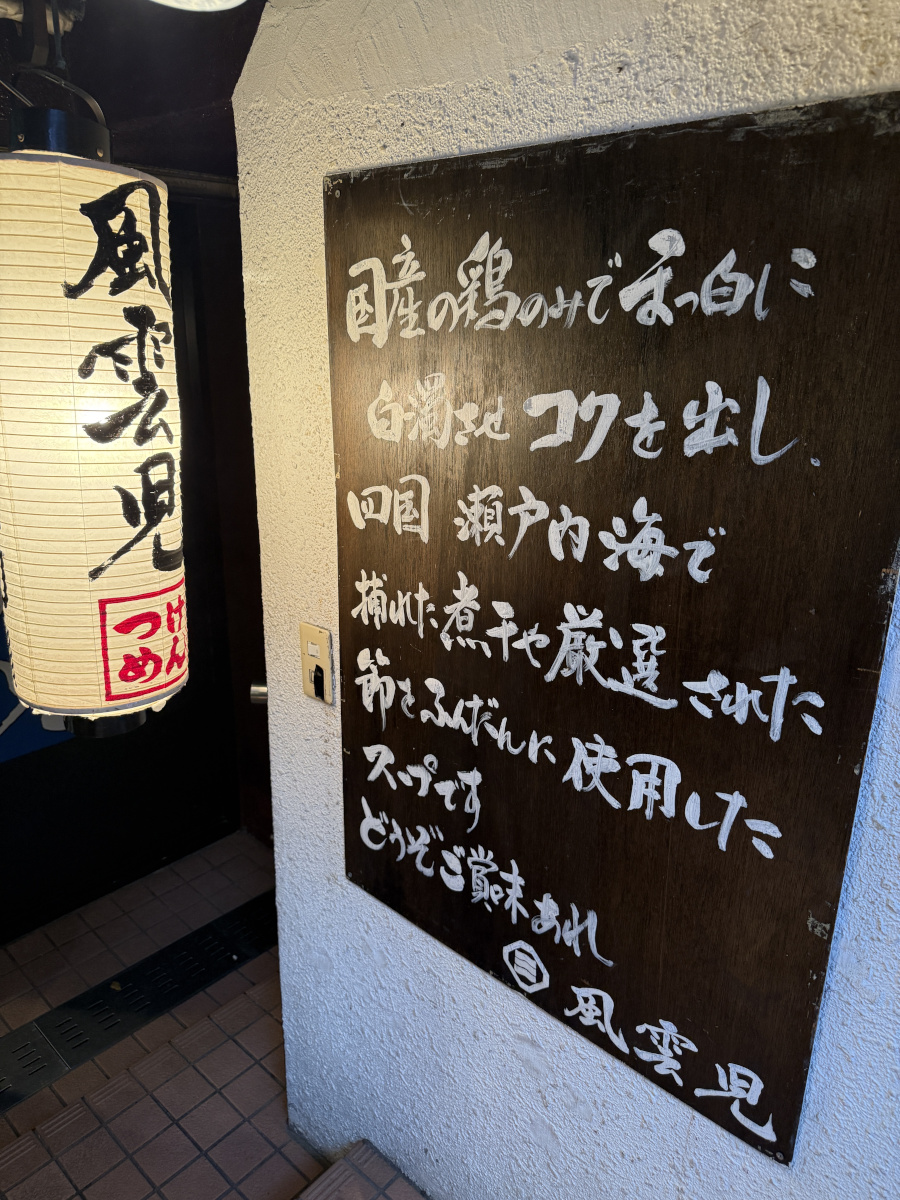 風雲児
つけ
めん
国産の鶏のみでまっ白に
白濁させコクを出し、
四国 瀬戸内海で
捕れた煮干や厳選された
節をふんだんに使用した
スープです
どうぞご賞味あれ
三 風雲児